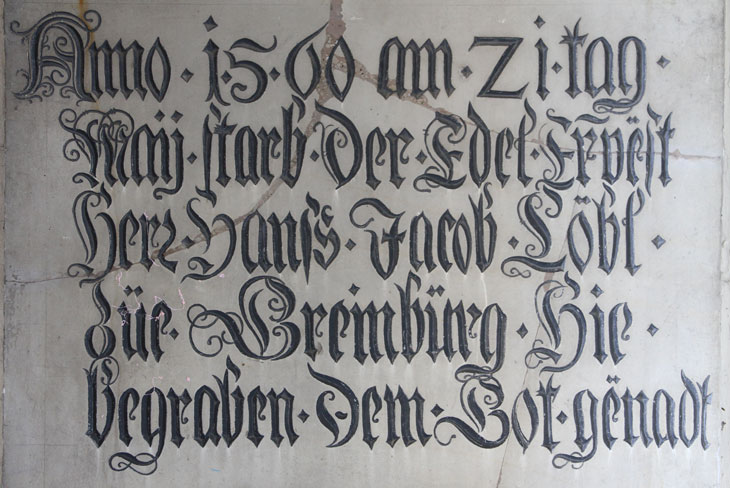 Anno · i · 5 · 60 am · Z i · tag ·
Maij · starb · der · Edel · Ervëst
Herr · Hanss · Jacob · Löbl ·
Züe · Greinbürg · Hie ·
begraben · Dem · Got · gënadt